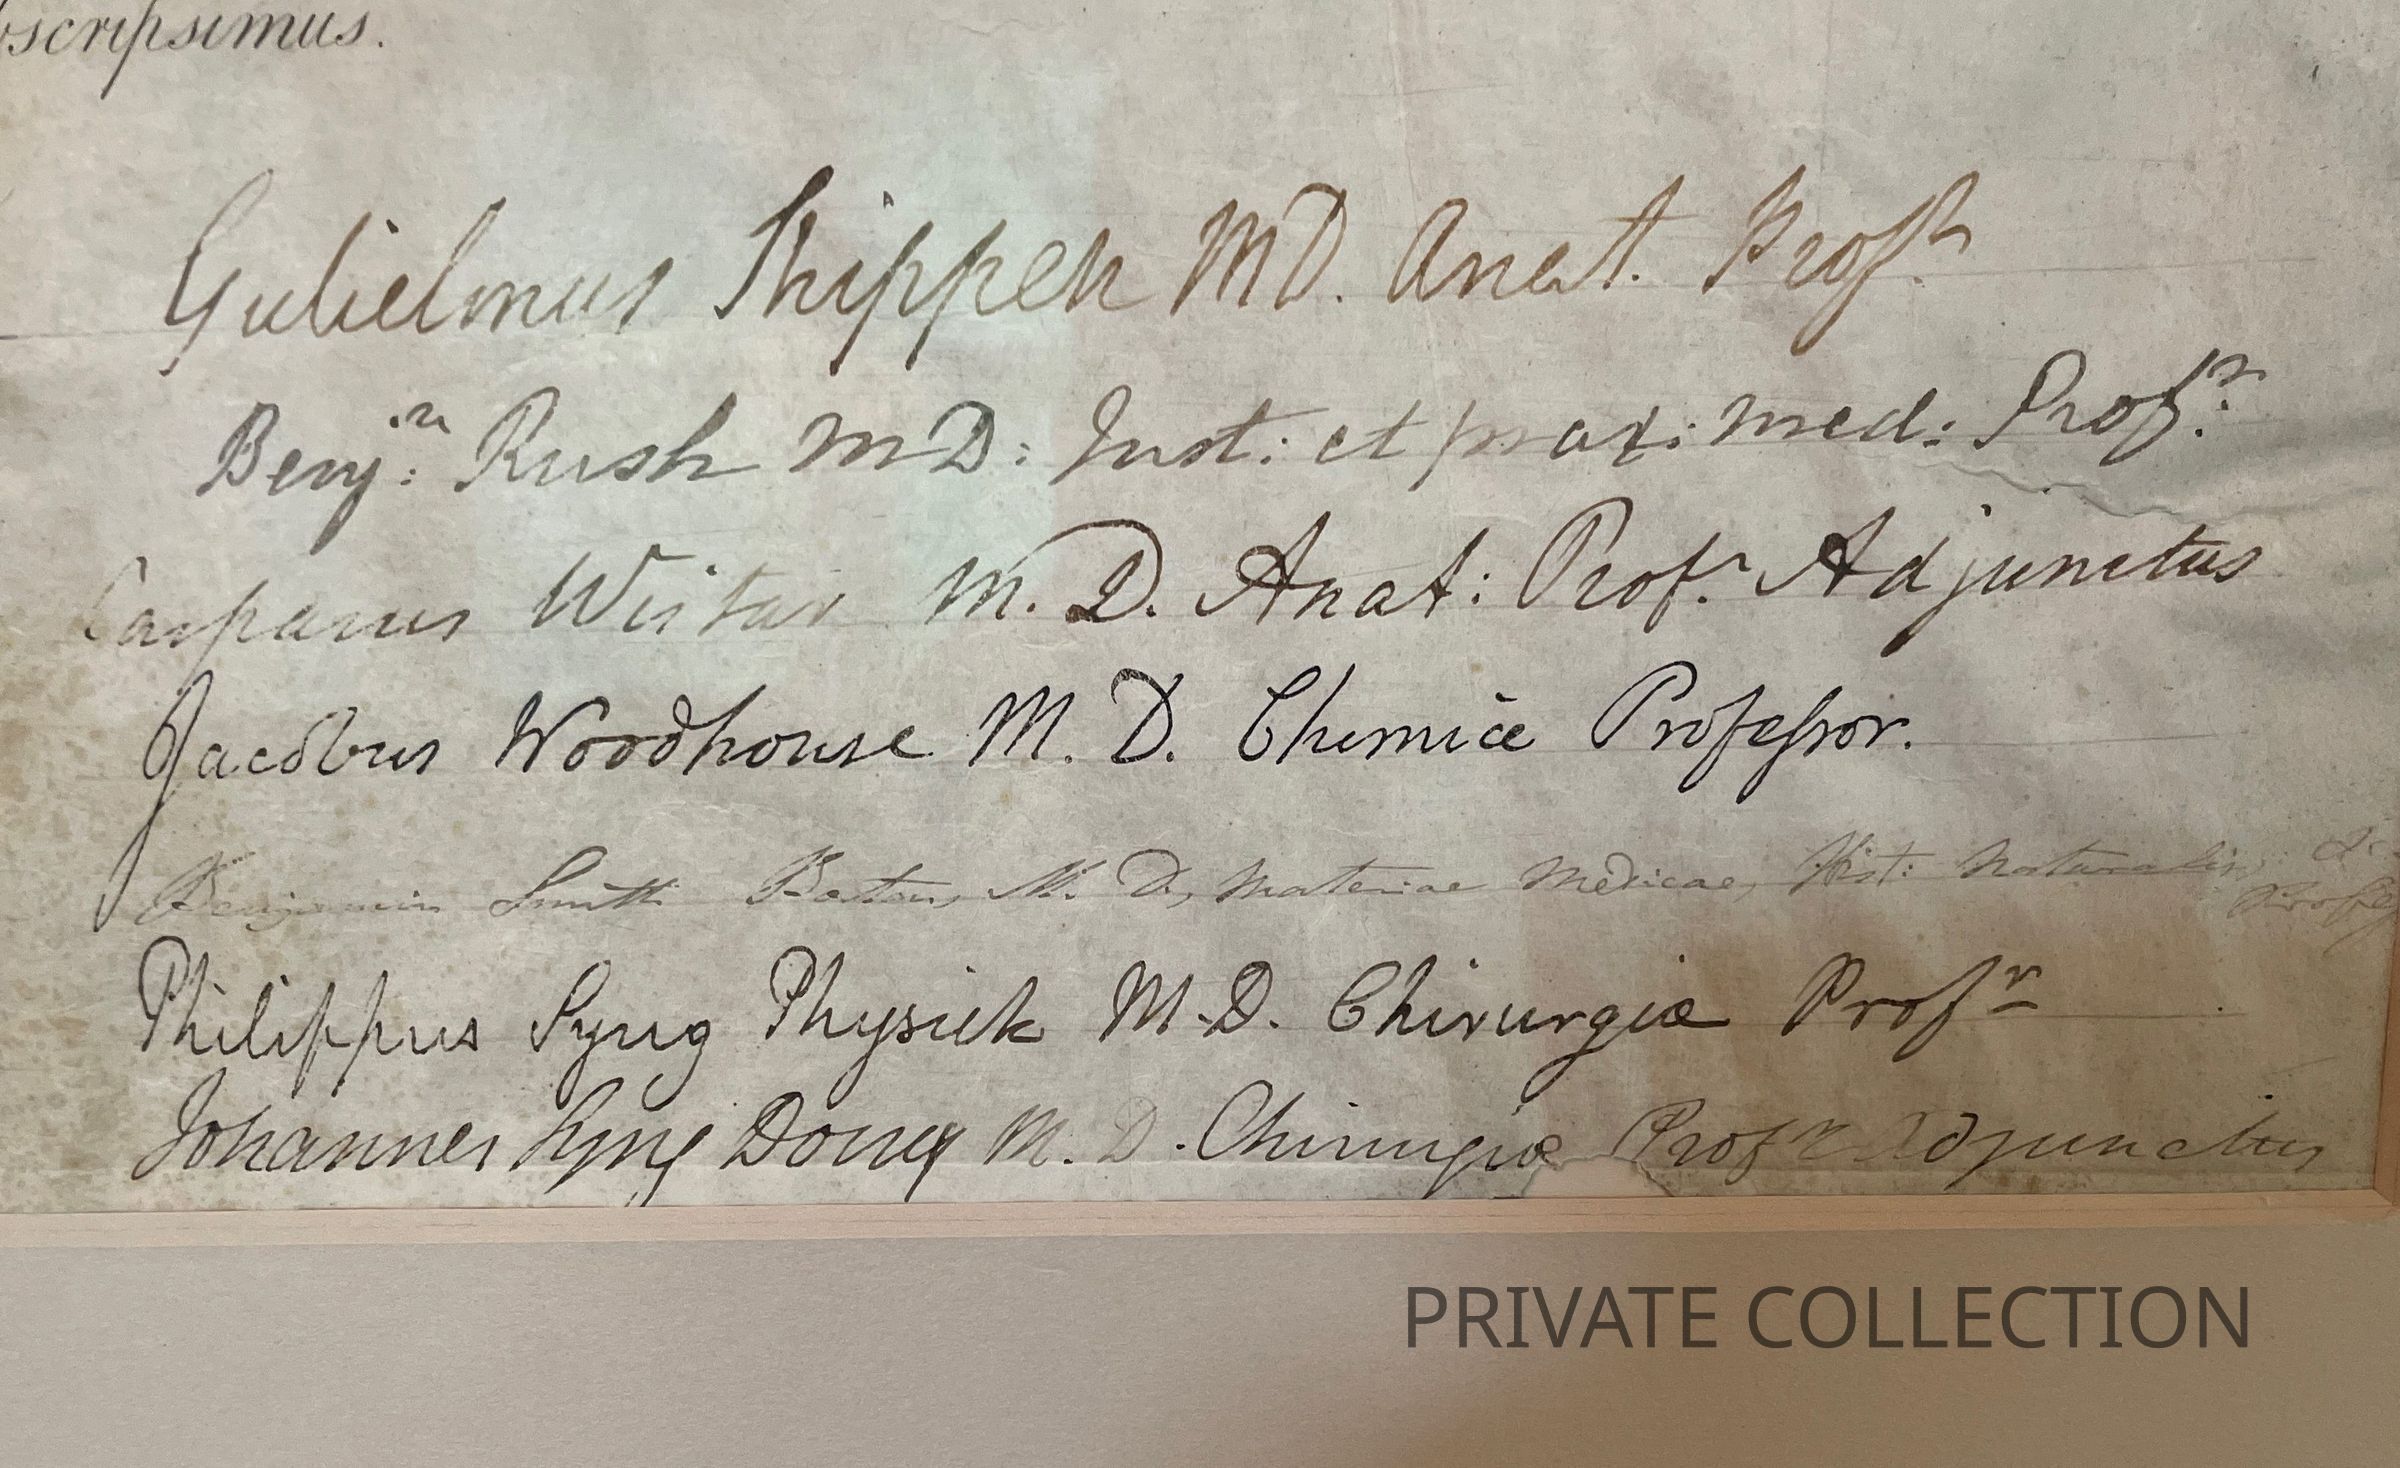 bscripsimus.
Gulielmus Shippen MD. Anat. Profr.
Benjn: Rush MD: Inst: et prax: med: Profr:
Casparus Wistar M. D. Anat: Profr. Adjunctus
Jacobus Woodhouse M. D. Chemiæ Professor.
Benjamin Smith Barton, M. D., Materiae Medicae, Hist: Naturalis, &c
Profes
Philippus Syng Physick M.D. Chirurgiæ Profr
Johannes Syng Dorsey M. D. Chirurgiæ Profr Adjunctus
PRIVATE COLLECTION